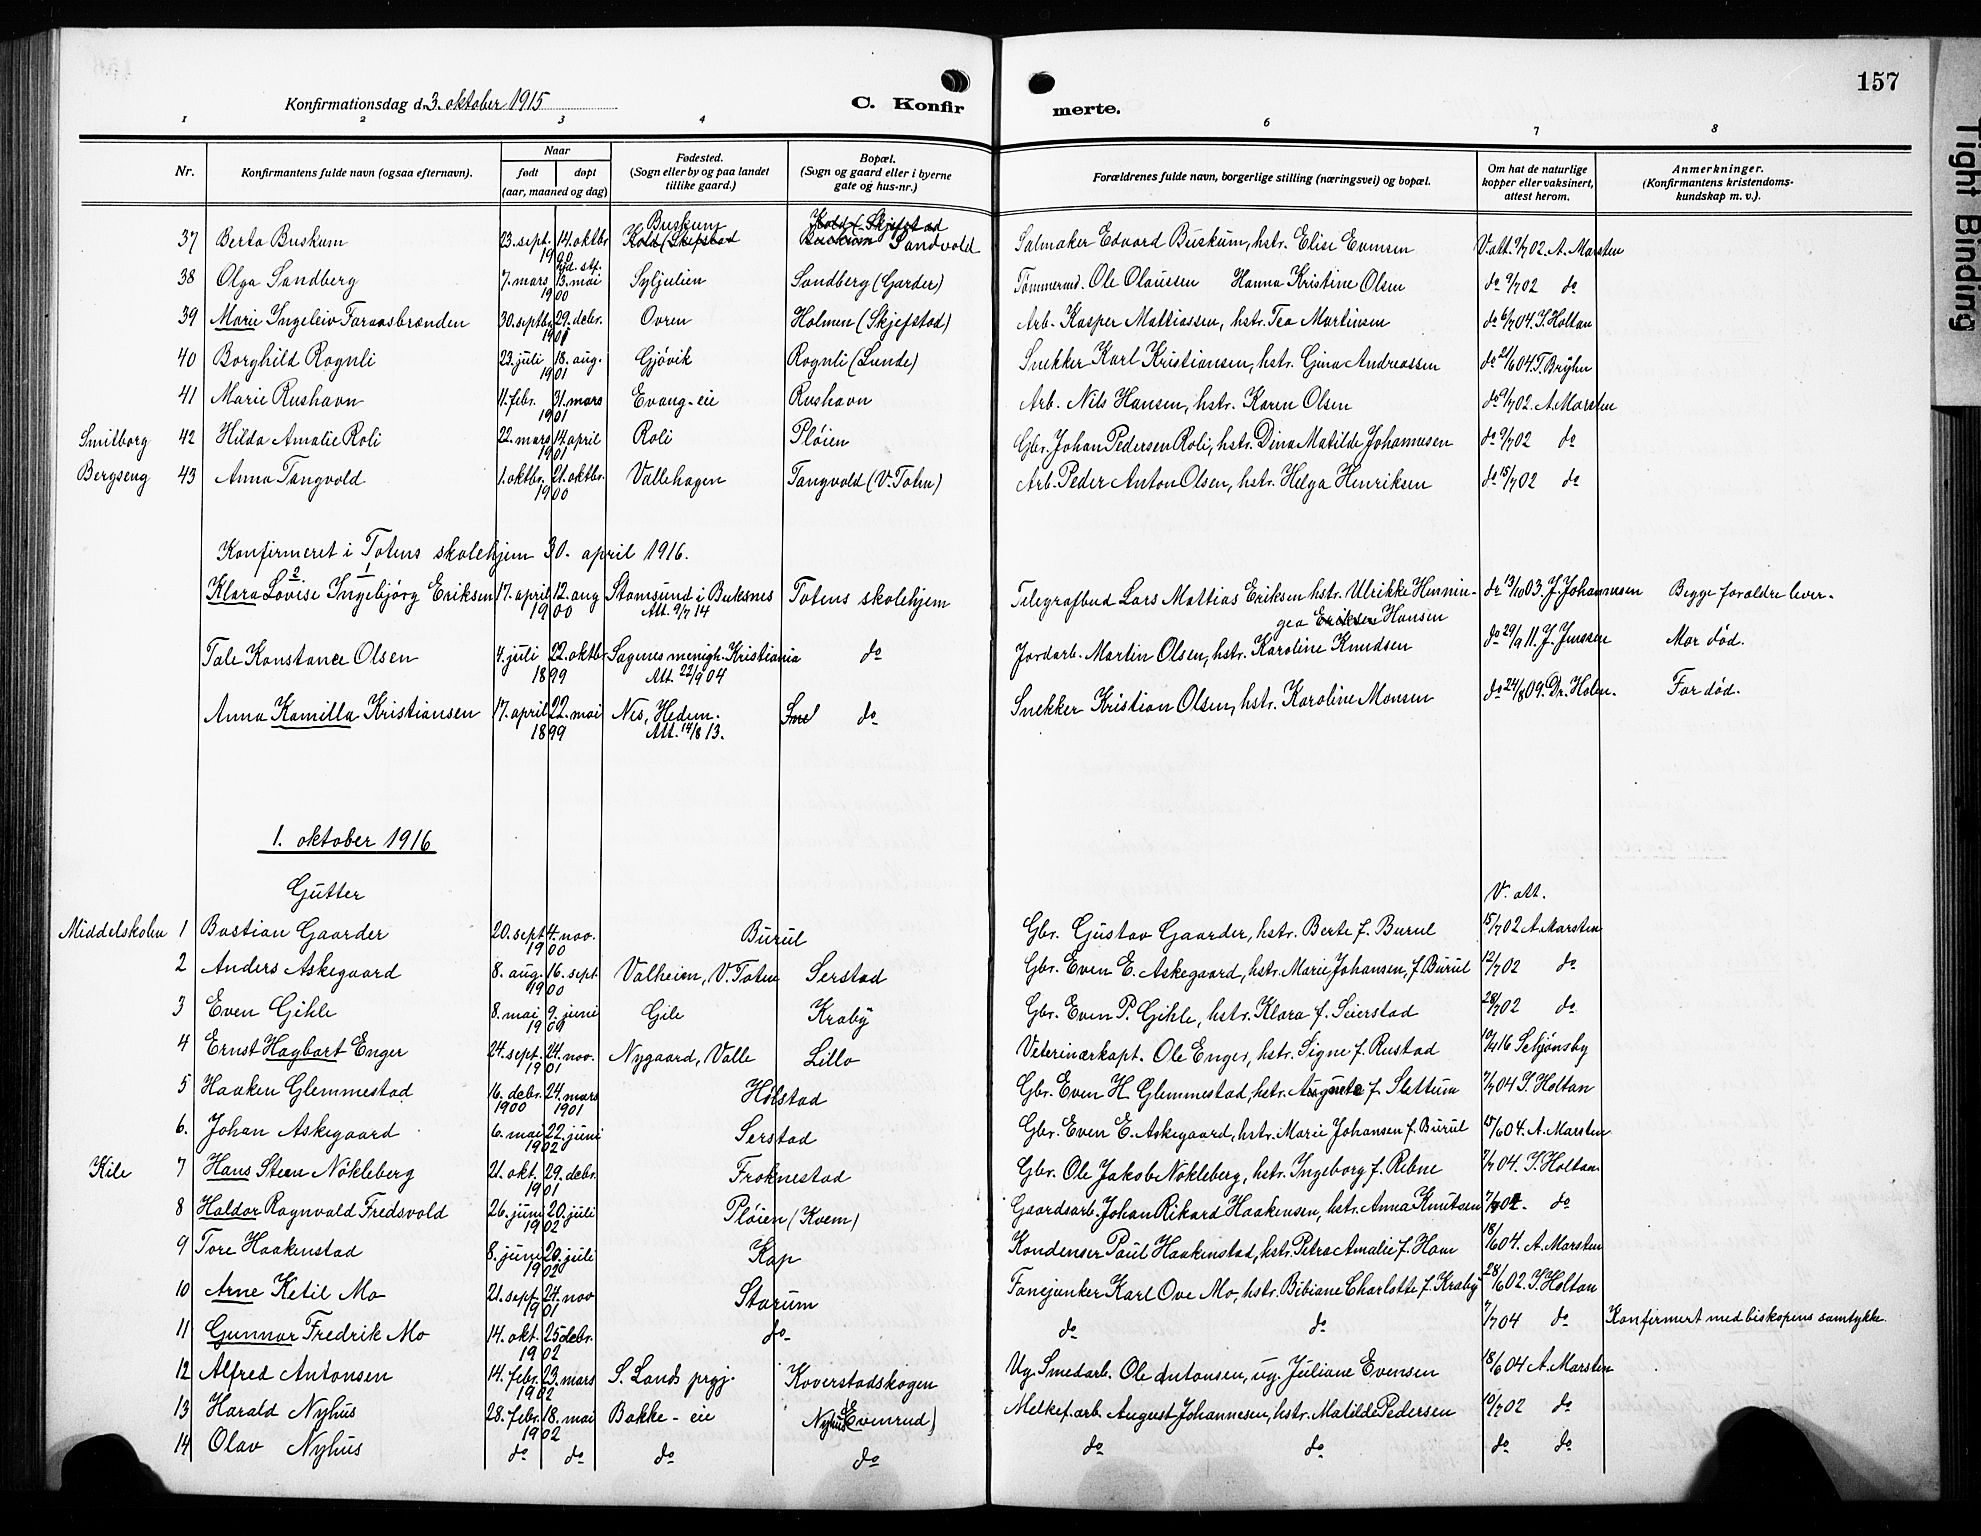 157
Konfirmationsdag d. 3. oktober 1915 C. Konfirmerte.
1 2 3 4 6 7 8
Nr. Konfirmantens fulde navn (ogsaa efternavn). Naar født døpt (aar, maaned og dag) Fødested. (Sogn eller by og paa landet tillike gaard.) Bopæl. (Sogn og gaard eller i byerne gate og hus-nr.) Forældrenes fulde navn, borgerlige stilling (næringsvei) og bopæl. Om hat de naturlige kopper eller vaksinert, attest herom. Anmerkninger. (Konfirmantens kristendoms-kundskap m. v.).
37 Berta Buskum 23. sept. 14. oktbr 1900 Buskum Sandvold Salmaker Edvard Buskum, hstr. Elise Evensen V. att. 9/7 02. A. Marsten
38 Olga Sandberg 7. mars 13. mai 1900 Syljulien Sandberg (Garder) Tømmermd. Ole Olaussen Hanna Kristine Olsen do 9/7 02 do
39 Marie Ingeleiv Faraasbrænden 30. septbr. 29. debr. 1901 Ovren Holmen (Skjefstad) Arb. Kasper Mattiassen, hstr. Tea Martinsen do 6/7 04. S. Holtan
40 Borghild Rognli 23. juli 18. aug. 1901 Gjøvik Rognli (Lunde) Snekker Karl Kristiansen, hstr. Gina Andreassen do 21/6 04. T. Bryhn
41 Marie Rushavn 11. febr. 31. mars 1901 Evang-eie Rushavn Arb. Nils Hansen, hstr. Karen Olsen do 9/7 02. A. Marsten
Smitborg 42 Hilda Amalie Roli 22. mars 14. april 1901 Roli Pløien Gbr. Johan Pedersen Roli, hstr. Dina Matilde Johannesen do 9/7 02 do
Bergseng 43 Anna Tangvold 1. oktbr. 21. oktbr. 1900 Vallehagen Tangvold (V. Toten) Arb. Peder Anton Olsen, hstr. Helga Henriksen do 15/7 02 do
Konfirmeret i Totens skolehjem 30. april 1916.
2 1
Klara Lovise Ingebjørg Eriksen 17. april 12. aug 1900 Stamsund i Buksnes Att. 9/7 14 Totens skolehjem Telegrafbud Lars Mattias Eriksen hstr. Ulrikke Hennin- do 13/10 03. J. Johannesen Begge forældre lever.
gea Eriksen Hansen
Tale Konstance Olsen 4. juli 22. oktbr 1899 Sagenes menigh. Kristiania Att. 22/9 04 do Jordarb. Martin Olsen, hstr. Karoline Knudsen do 29/9 11. J. Jenssen Mor død.
Anna Kamilla Kristiansen 17. april 22. mai 1899 Nes, Hedem. Att. 14/8 13. do Snekker Kristian Olsen, hstr. Karoline Monsen do 24/8 09. Dr. Holm. Far død.
1. oktober 1916
Gutter V. att.
Middelskolen 1 Bastian Gaarder 20. sept 4. nov. 1900 Burul Gbr. Gustav Gaarder, hstr. Berte f. Burul 15/7 02 A. Marsten
2 Anders Askegaard 8. aug. 16. sept. 1900 Valheim, V. Toten Serstad Gbr. Even E. Askegaard, hstr. Marie Johansen, f. Burul 12/7 02 do
3 Even Gihle 8. mai 9. juni 1901 Gile Kraby Gbr. Even P. Gihle, hstr. Klara f. Seierstad 28/7 02 do
4 Ernst Hagbart Enger 24. sept. 24. nov. 1901 Nygaard, Valle Lillo Veterinærkapt. Ole Enger, hstr. Signe f. Rustad 19/4 16 Schjønsby
5 Haaken Glemmestad 16. debr. 1900 24. mars 1901 Hølstad Gbr. Even H. Glemmestad, hstr. Auguste f. Slettum 7/7 04 S. Holtan
6. Johan Askegaard 6. mai 22. juni 1902 Serstad Gbr. Even E. Askegaard, hstr. Marie Johansen f. Burul 15/6 04. A. Marsten
Kile 7 Hans Steen Nøkleberg 21. okt. 29. debr. 1901 Froknestad Gbr. Ole Jakob Nøkleberg, hstr. Ingeborg f. Rebne 7/7 04. S. Holtan
8 Haldor Ragnvald Fredsvold 26. juni 20. juli 1902 Pløien (Kvem) Gaardsarb. Johan Rikard Haakensen, hstr. Anna Knutsen 7/7 04. do
9 Tore Haakenstad 8. juni 20. juli 1902 Kap Kondenser Paul Haakenstad, hstr. Petra Amalie f. Ham 18/6 04. A. Marsten
10 Arne Ketil Mo 21. sept. 24. nov 1901 Starum Fanejunker Karl Ove Mo, hstr. Bibiane Charlotte f. Kraby 28/6 02. S. Holtan
11 Gunnar Fredrik Mo 14. okt. 25 debr. 1902 do do do 7/7 04 do Konfirmert med biskopens samtykke.
12 Alfred Antonsen 14. febr. 23. mars 1902 S. Lands prgj. Koverstadskogen Ug. Smedarb. Ole Antonsen, ug. Juliane Evensen 18/6 04 A. Marsten
13 Harald Nyhus 28. febr. 18. mai 1902 Bakke-eie Nyhus (Evenrud) Melkef.arb. August Johannesen, hstr. Matilde Pedersen 10/7 02 do
14 Olav Nyhus do do do do do do do do
Tight Binding